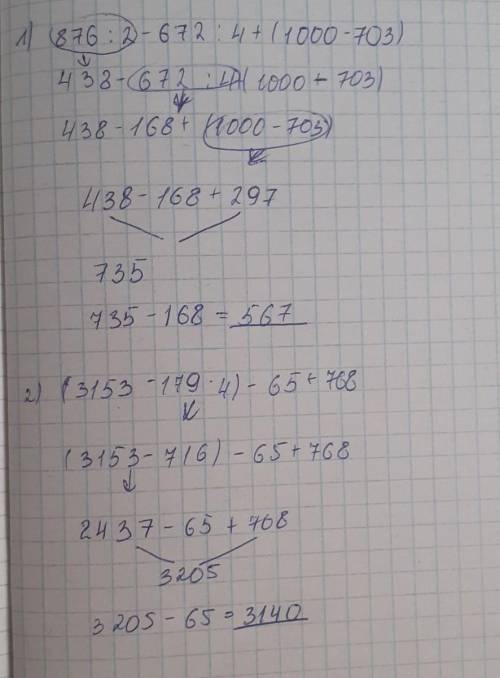 1) (876 : 2) - 672 : 4 + (1000 - 703)
438 - (672 : 4) + (1000 - 703)
438 - 168 + (1000 - 703)
438 - 168 + 297
735
735 - 168 = 567
2) (3153 - 179 · 4) - 65 + 768
(3153 - 716) - 65 + 768
2437 - 65 + 768
3205
3205 - 65 = 3140